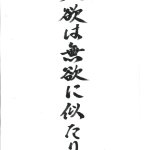 欲は無欲に似たり